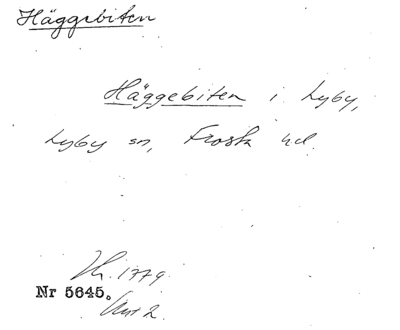 Häggebiten
Häggebiten i Lyby,
Lyby sn, Frosta hd.
1779.
Nr 5645.
2.